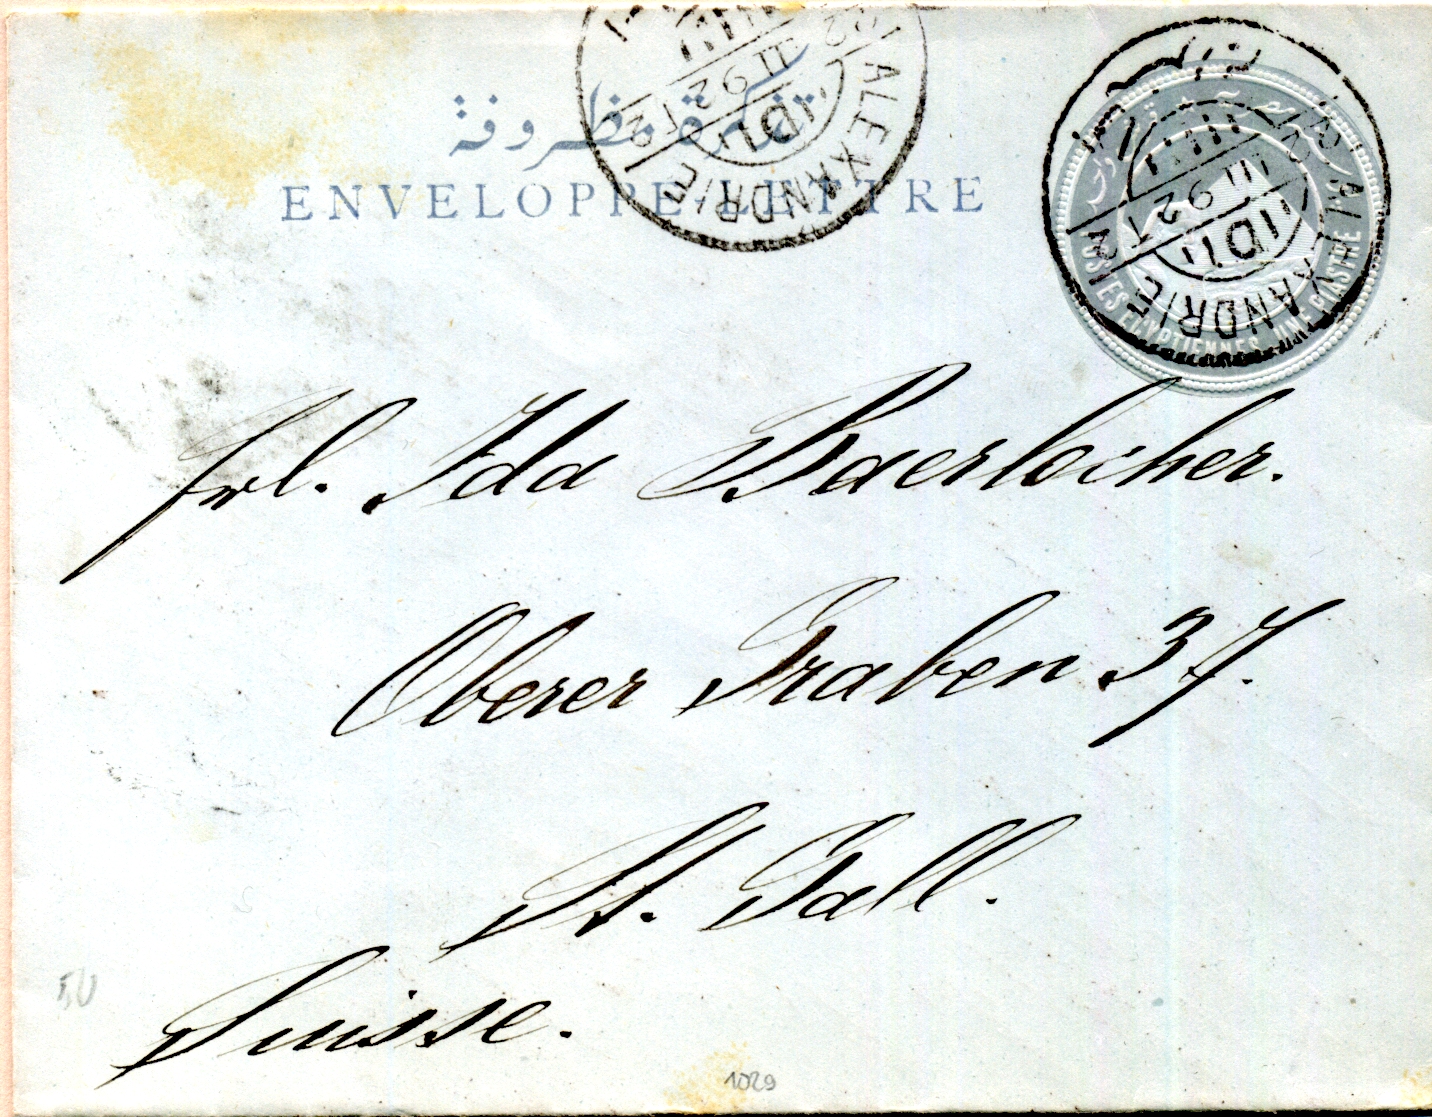 تذكرة مظروفة
ENVELOPPE-LETTRE
ALEXANDRIE
ALEXANDRIE
POSTES EGYPTIENNES UNE PIASTRE
Frl. Ida Baerlocher.
Oberer Graben 37.
St. Gall.
Suisse.
1029